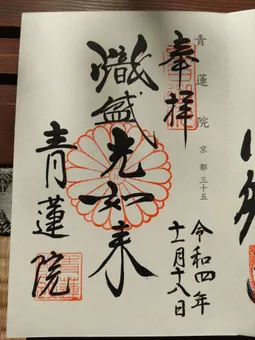 青蓮院 京都三十五
奉拝
熾盛光如来
青蓮院
令和四年
十一月十八日